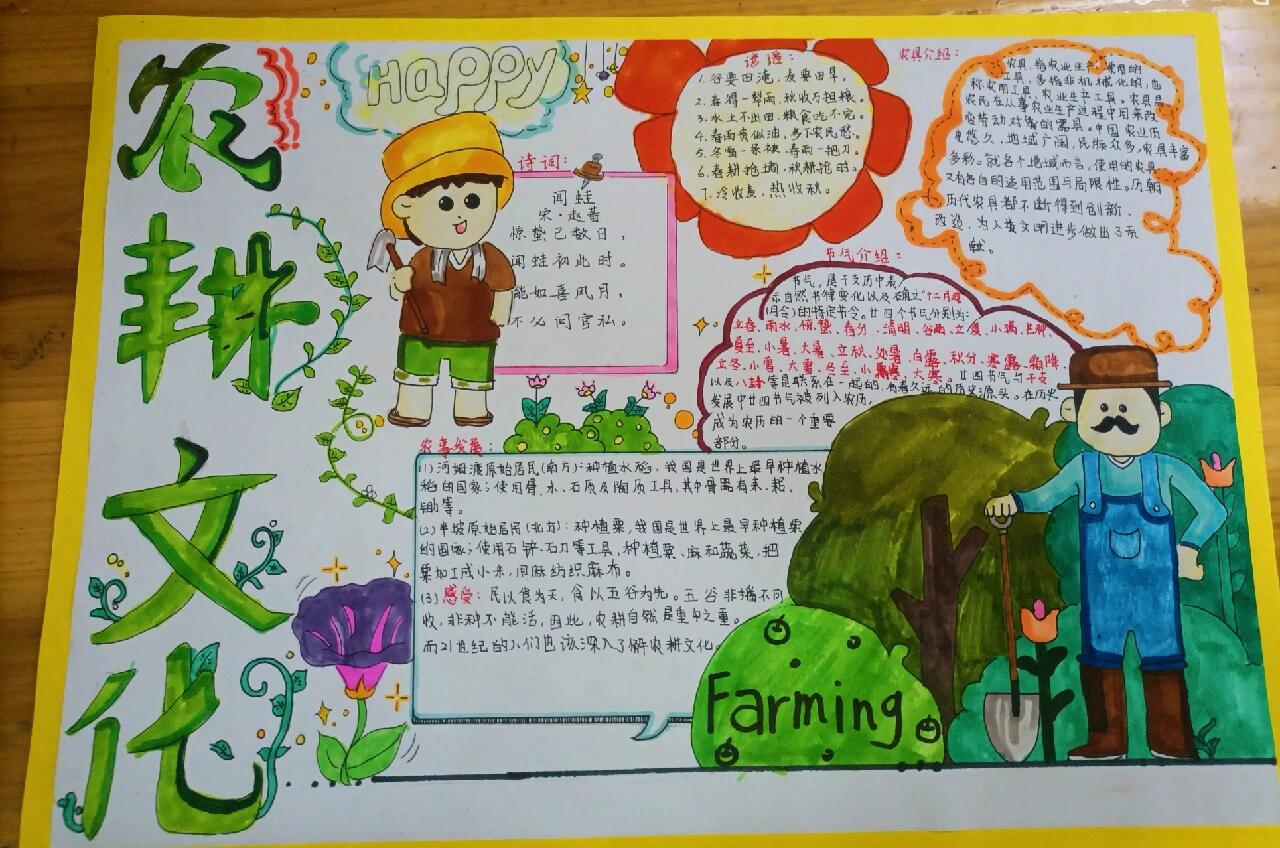 农耕文化
Happy
诗词：
闻蛙
宋·赵蕃
惊蛰已数日，
闻蛙初此时。
能如喜风月，
不必问官私。
谚语：
1.谷要田淹，麦要田旱，
2.春得一犁雨，秋收万担粮。
3.水上不出田，粮食吃不完。
4.春雨贵似油，多下农民愁。
5.冬雪一条被，春雨一把刀。
6.春耕抢墒，秋耕抢时。
7.冷收麦，热收秋。
农具介绍：
农具，指农业生产使用的
工具，多指非机械化的，也
称农用工具、农业生产工具。农具是
农民在从事农业生产过程中用来改
变劳动对象的器具。中国农业历
史悠久，地域广阔，民族众多，农具丰富
多彩。就各个地域而言，使用的农具
又有各自的适用范围与局限性。历朝
历代农具都不断得到创新、
改造，为人类文明进步做出了贡
献。
节气介绍：
节气，是干支历中表
示自然节律变化以及确立“十二月建
(月令)的特定节令。廿四个节气分别为：
立春、雨水、惊蛰、春分、清明、谷雨、立夏、小满、芒种、
夏至、小暑、大暑、立秋、处暑、白露、秋分、寒露、霜降、
立冬、小雪、大雪、冬至、小寒、大寒。廿四节气与干支
以及八卦等是联系在一起的，有着久远的历史源头。在历史
发展中廿四节气被列入农历，
成为农历的一个重要
部分。
农事发展：
(1)河姆渡原始居民(南方)：种植水稻，我国是世界上最早种植水
稻的国家；使用骨、木、石质及陶质工具，其中骨器有耒、耜、
锄等。
(2)半坡原始居民(北方)：种植粟，我国是世界上最早种植粟
的国家；使用石铲、石刀等工具，种植粟、麻和蔬菜，把
粟加工成小米，用麻纺织麻布。
(3)感受：民以食为天，食以五谷为先。五谷非播不可
收，非种不能活，因此，农耕自然是重中之重。
而21世纪的人们也该深入了解农耕文化。
Farming